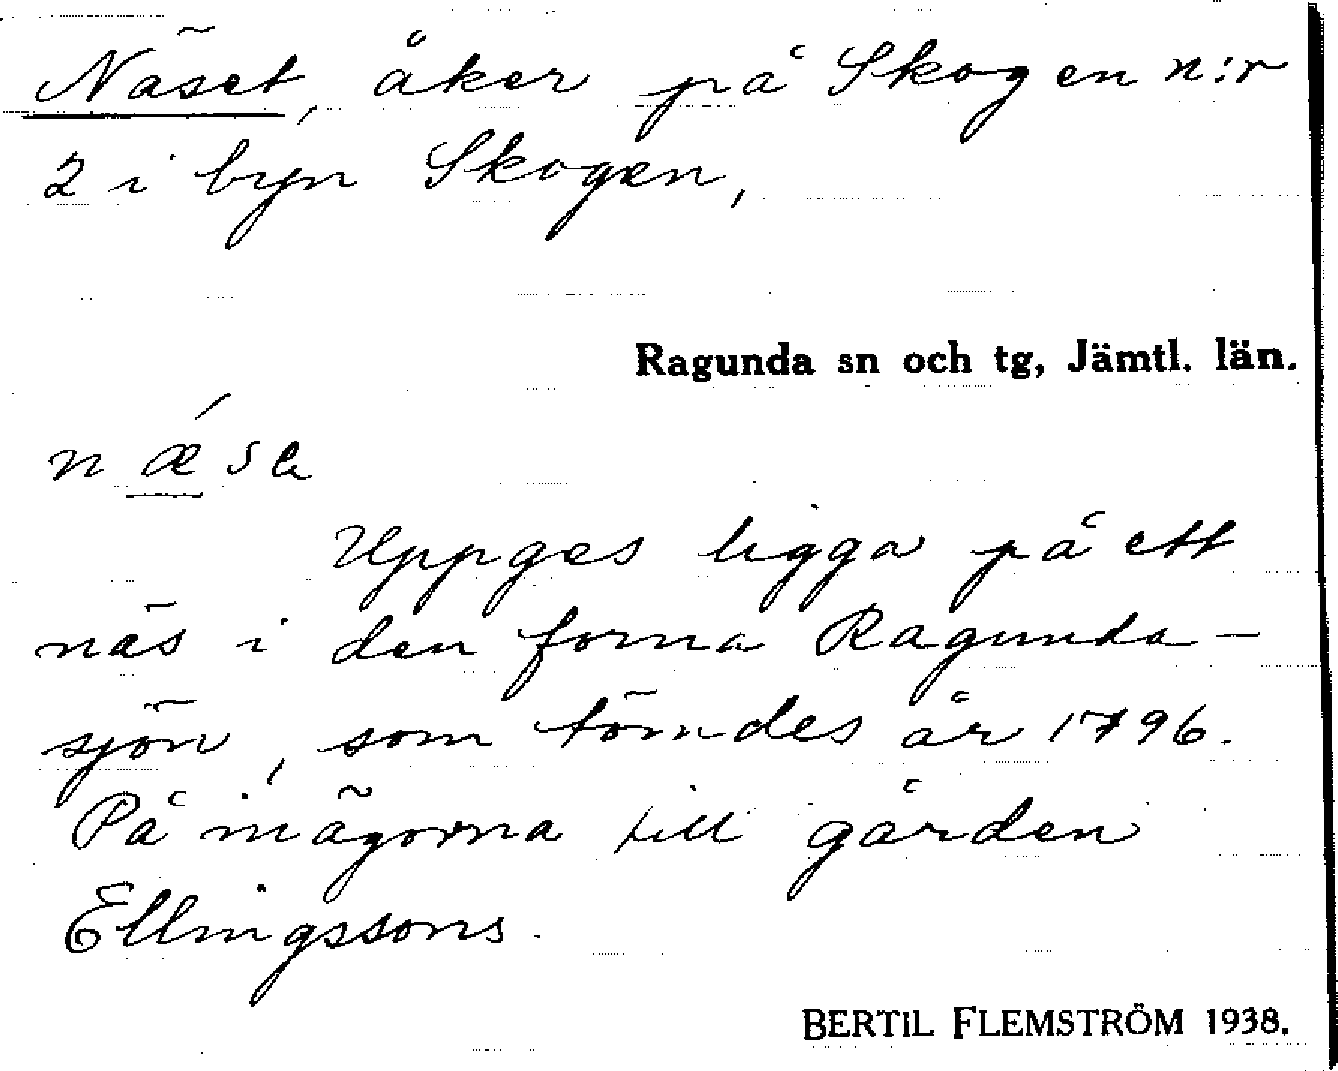 Näset, åker på Skogen n:r
2 i byn Skogen,
Ragunda sn och tg, Jämtl. län.
Uppges ligga på ett
näs i den forna Ragunda-
sjön, som tömdes år 1796.
På inägorna till gården
Ellingssons.
BERTIL FLEMSTRÖM 1938.